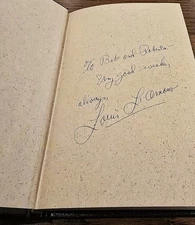 To Bob and Roberta -
My good wishes,
always,
Louis L'Amour